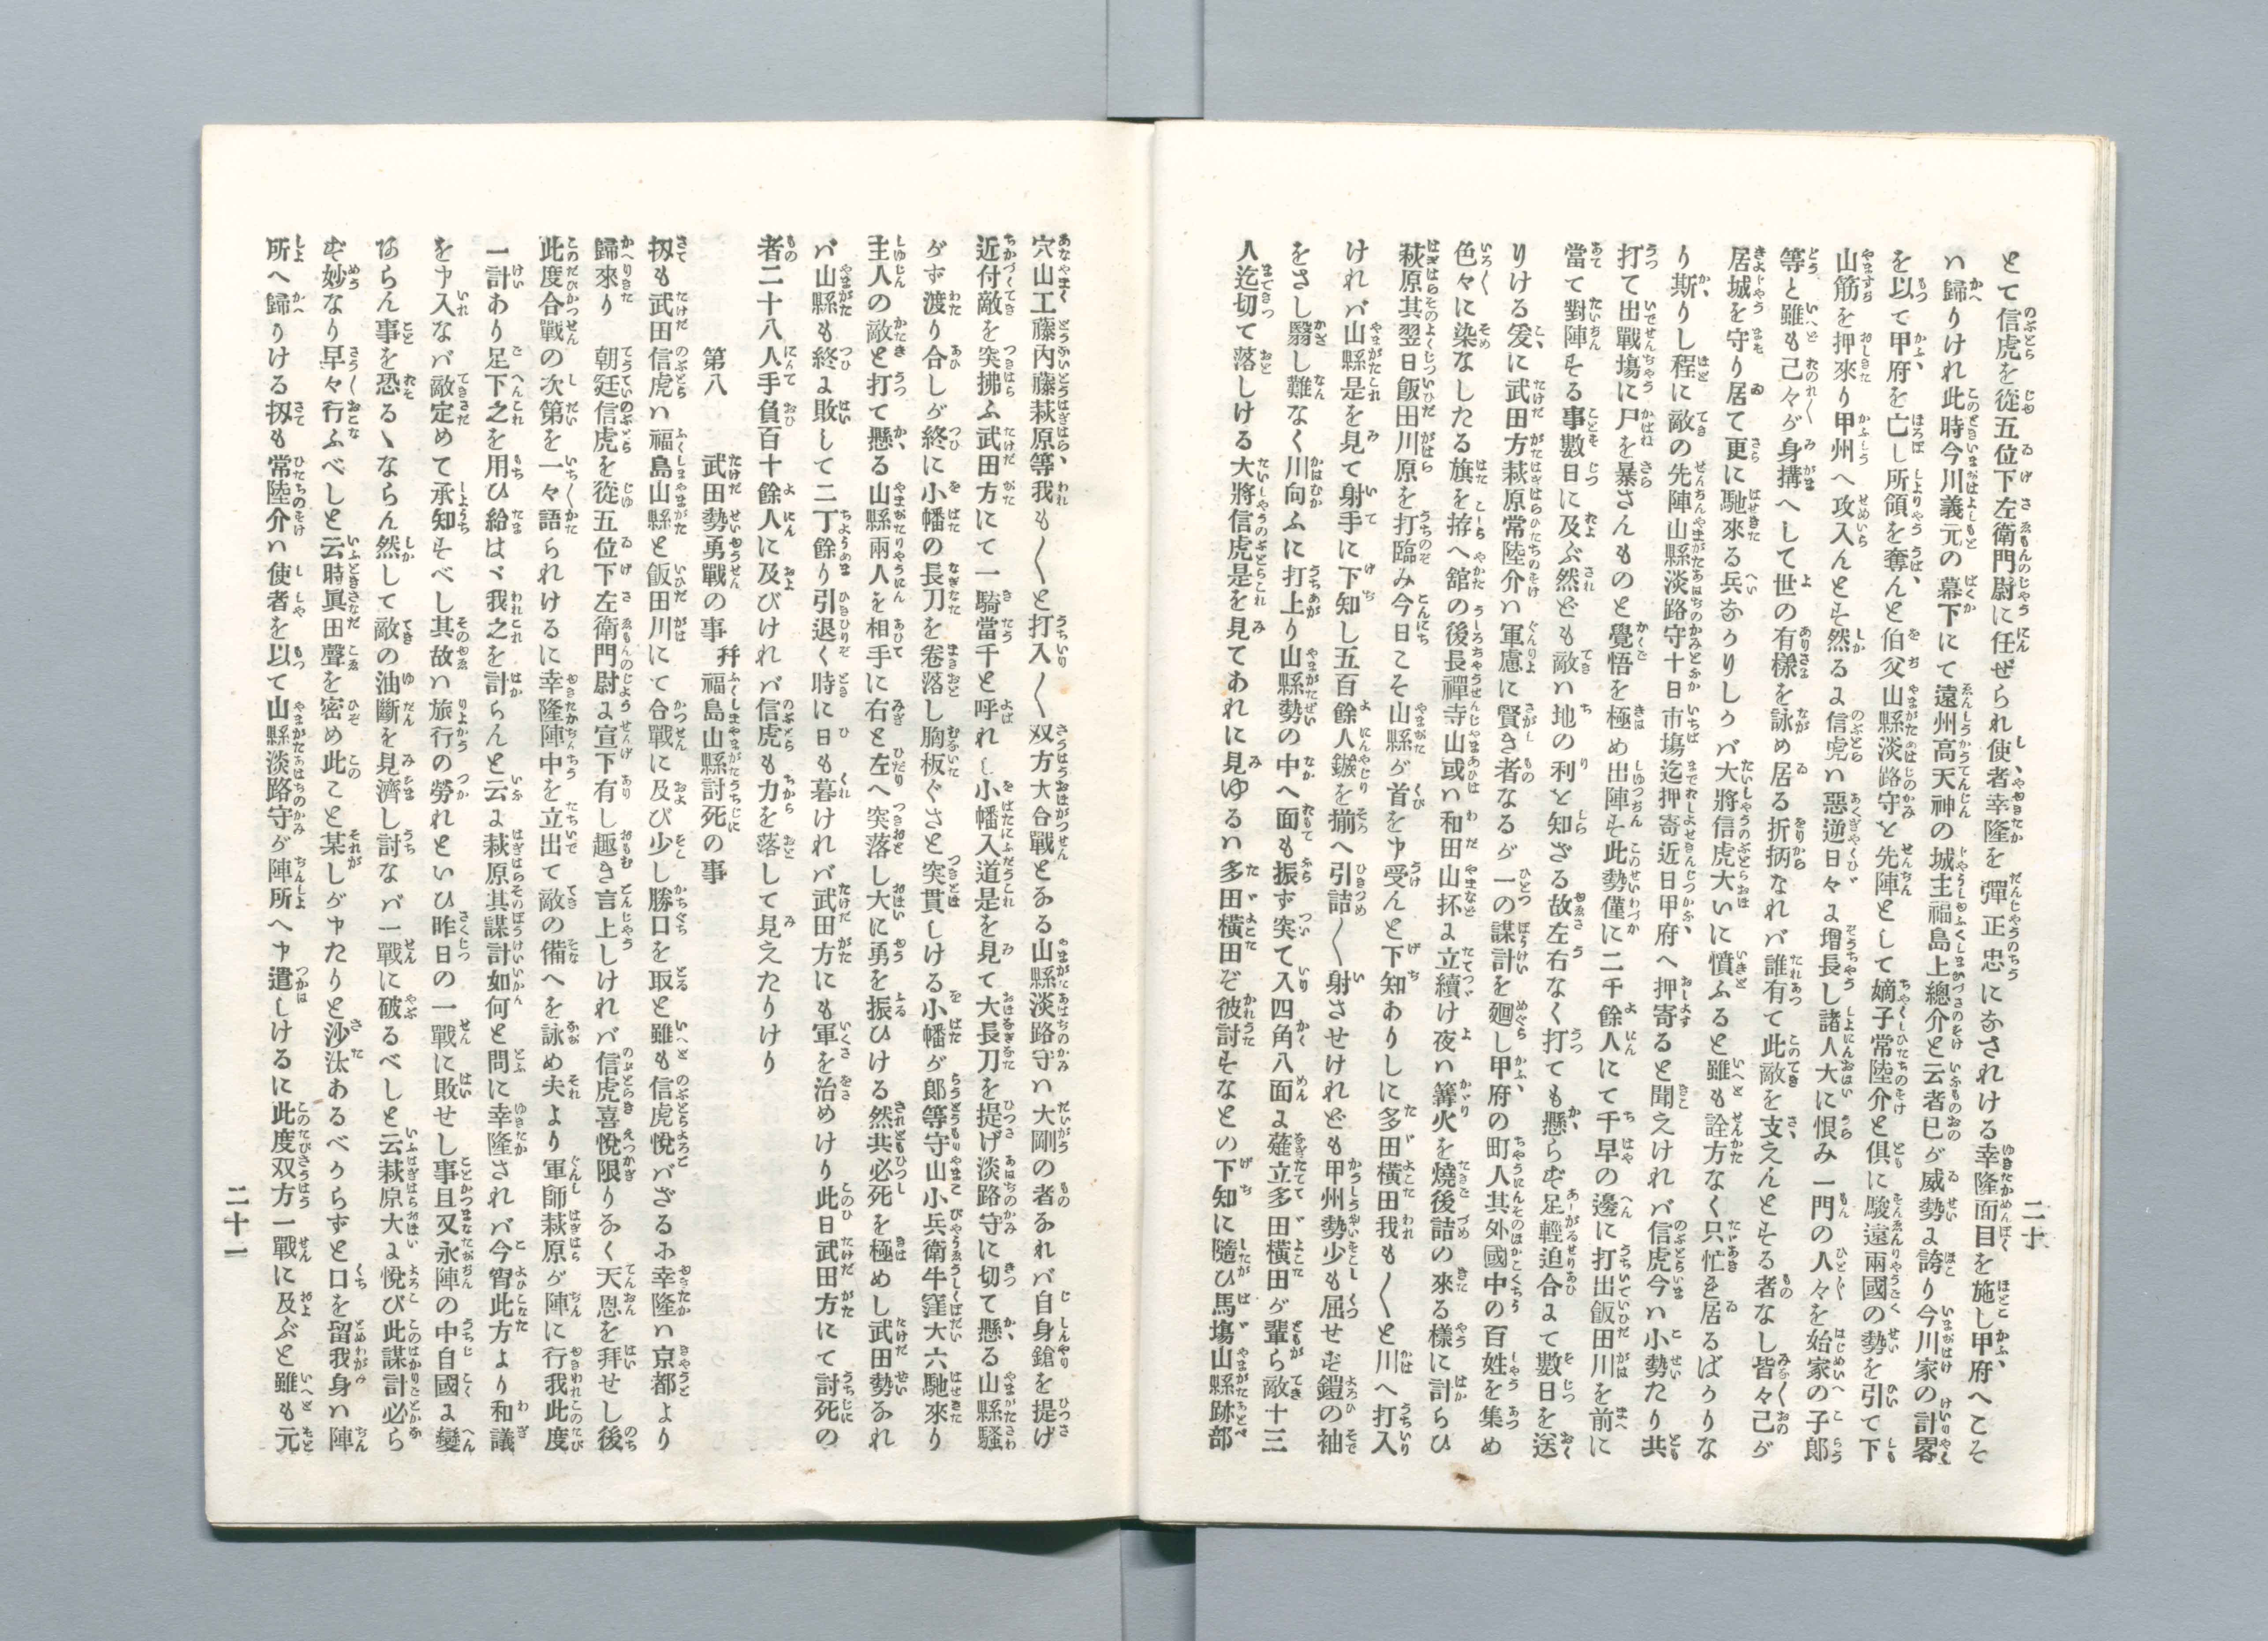 二十
とて信虎を從五位下左衛門尉に任ぜられ使者幸隆を彈正忠になされける幸隆面目を施し甲府へこそ
ハ歸りけれ此時今川義元の幕下にて遠州高天神の城主福島上總介と云者已が威勢よ誇り今川家の計畧
を以て甲府を亡し所領を奪んと伯父山縣淡路守と先陣として嫡子常陸介と倶に駿遠兩國の勢を引て下
山筋を押來り甲州へ攻入んとそ然るよ信虎ハ惡逆日々よ增長し諸人大に恨み一門の人々を始家の子郎
等と雖も己々が身搆へして世の有樣を詠め居る折柄なれバ誰有て此敵を支えんとそる者なし皆々己が
居城を守り居て更に馳來る兵なかりしかバ大將信虎大いに憤ふると雖も詮方なく只忙き居るばかりな
り斯りし程に敵の先陣山縣淡路守十日市塲迄押寄近日甲府へ押寄ると聞えけれバ信虎今ハ小勢たり共
打て出戰塲に尸を暴さんものと覺悟を極め出陣そ此勢僅に二千餘人にて千早の邊に打出飯田川を前に
當て對陣そる事數日に及ぶ然ども敵ハ地の利と知ざる故左右なく打ても懸らず足輕迫合よて數日を送
りける爰に武田方萩原常陸介ハ軍慮に賢き者なるが一の謀計を廻し甲府の町人其外國中の百姓を集め
色々に染なしたる旗を拵へ舘の後長禪寺山或ハ和田山抔よ立續け夜ハ篝火を燒後詰の來る樣に計らひ
萩原其翌日飯田川原を打臨み今日こそ山縣が首を申受んと下知ありしに多田橫田我も〱と川へ打入
けれバ山縣是を見て射手に下知し五百餘人鏃を揃へ引詰〱射させけれども甲州勢少も屈せず鎧の袖
をさし翳し難なく川向ふに打上り山縣勢の中へ面も振ず突て入四角八面よ薙立多田橫田が輩ら敵十三
人迄切て落しける大將信虎是を見てあれに見ゆるハ多田橫田ぞ彼討そなとの下知に隨ひ馬塲山縣跡部
穴山工藤內藤萩原等我も〱と打入〱双方大合戰とある山縣淡路守ハ大剛の者なれバ自身鎗を提げ
近付敵を突拂ふ武田方にて一騎當千と呼れし小幡入道是を見て大長刀を提げ淡路守に切て懸る山縣騷
がず渡り合しが終に小幡の長刀を卷落し胸板ぐさと突貫しける小幡が郞等守山小兵衛牛窪大六馳來り
主人の敵と打て懸る山縣兩人を相手に右と左へ突落し大に勇を振ひける然共必死を極めし武田勢なれ
バ山縣も終よ敗して二丁餘り引退く時に日も暮けれバ武田方にも軍を治めけり此日武田方にて討死の
者二十八人手負百十餘人に及びけれバ信虎も力を落して見えたりけり
第八　武田勢勇戰の事 并 福島山縣討死の事
扨も武田信虎ハ福島山縣と飯田川にて合戰に及び少し勝口を取と雖も信虎悅バざるふ幸隆ハ京都より
歸來り　朝廷信虎を從五位下左衛門尉よ宣下有し趣き言上しけれバ信虎喜悅限りなく天恩を拜せし後
此度合戰の次第を一々語られけるに幸隆陣中を立出て敵の備へを詠め夫より軍師萩原が陣に行我此度
一計あり足下之を用ひ給はゞ我之を計らんと云よ萩原其謀計如何と問に幸隆されバ今宵此方より和議
を申入なバ敵定めて承知そべし其故ハ旅行の勞れといひ昨日の一戰に敗せし事且又永陣の中自國よ變
あらん事を恐るゝならん然して敵の油斷を見濟し討なバ一戰に破るべしと云萩原大よ悅び此謀計必ら
ず妙なり早々行ふべしと云時眞田聲を密め此こと某しが申たりと沙汰あるべからずと口を留我身ハ陣
所へ歸りける扨も常陸介ハ使者を以て山縣淡路守が陣所へ申遣しけるに此度双方一戰に及ぶと雖も元
二十一